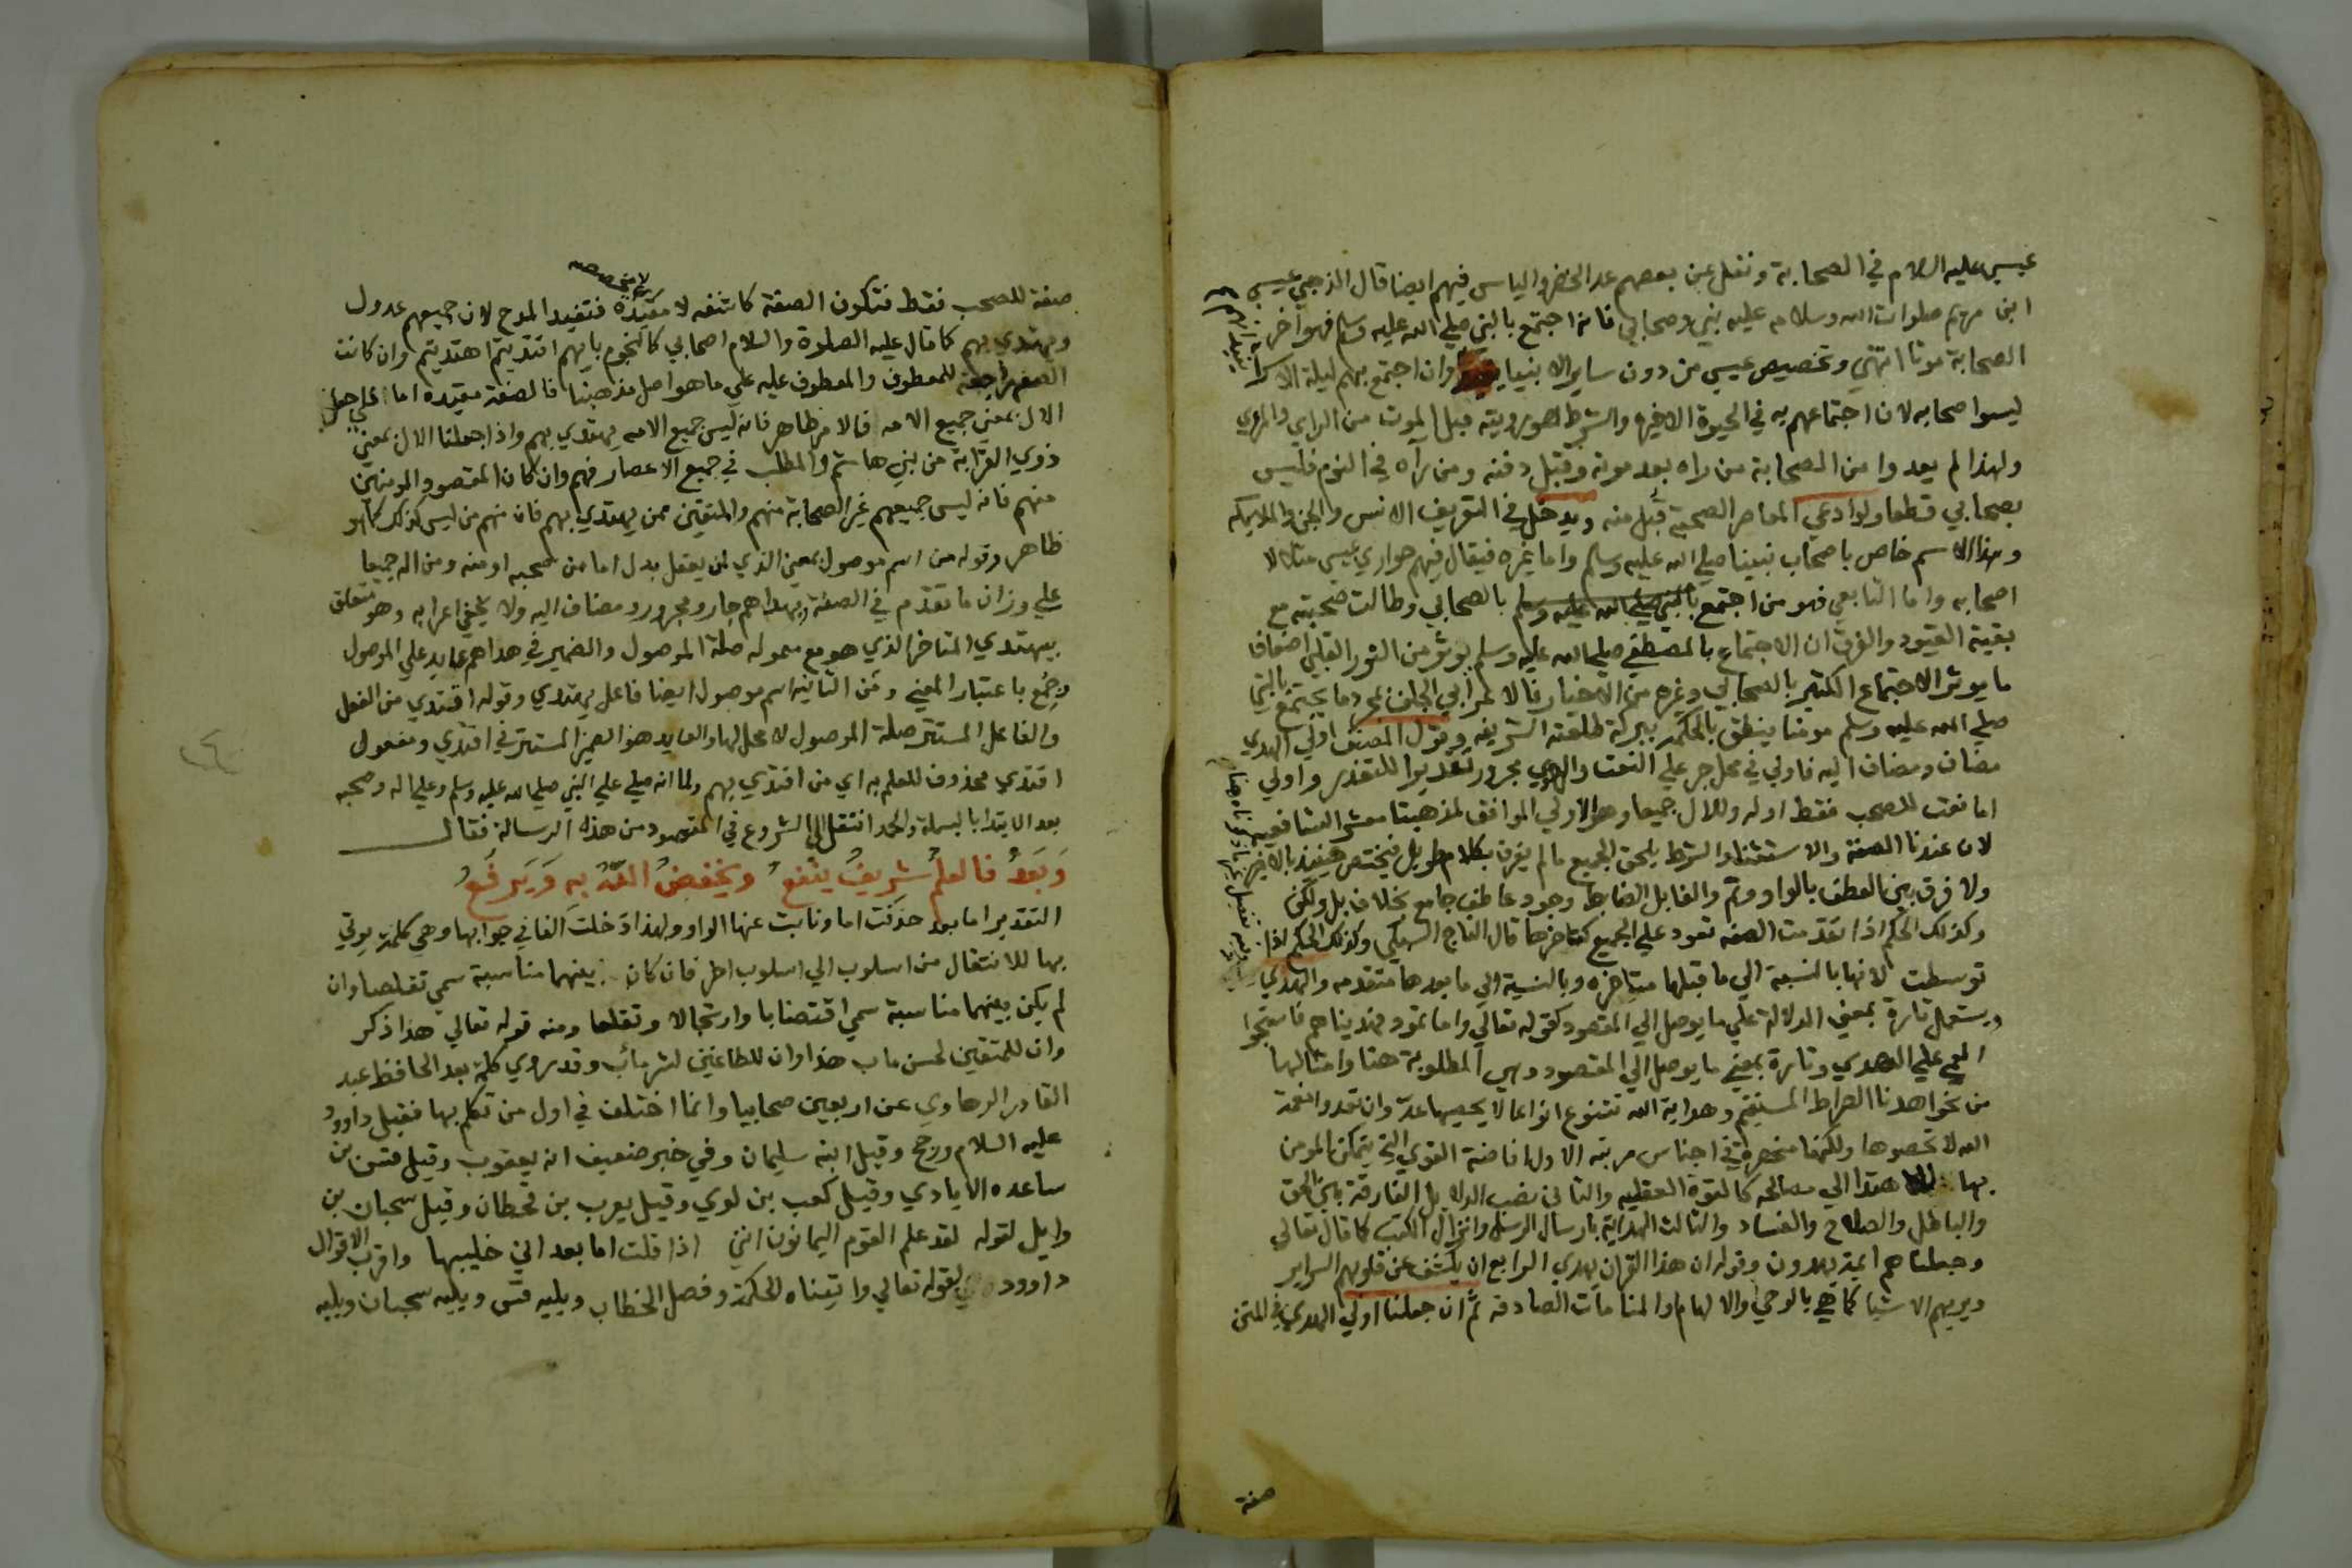 عيسى عليه السلام في الصحابة ونقل عن بعضهم عد الخضر والياس فيهم ايضا قال الذهبي عيسى
ابن مريم صلوات الله وسلامه عليه نبي وصحابي فانه اجتمع بالنبي صلي الله عليه وسلم فهو اخر
الصحابة موتا انتهي وتخصيص عيسي من دون ساير الانبيا وان اجتمع بهم ليلة الاسرا
ليسوا صحابه لان اجتماعهم به في الحيوة الاخيره والشرط رويته قبل الموت من الراي والمري
ولهذا لم يعدوا من الصحابة من راه بعد موته وقبل دفنه ومن رآه في النوم فليس
بصحابي قطعا ولو ادعي المعاصر الصحبة قبل منه ويدخل في التعريف الانس والجن والملايكه
وهذا الاسم خاص باصحاب نبينا صلي الله عليه وسلم واما غيره فيقال فيهم حواري عيسى مثلا لا
اصحابه واما التابعي فهو من اجتمع بالنبي صلي الله عليه وسلم بالصحابي وطالت صحبته مع
بقية القيود والفرق ان الاجتماع بالمصطفي صلي الله عليه وسلم يوثر من النور القلبي اضعاف
ما يوثر الاجتماع الكثير بالصحابي وغيره من الاخيار فالاعرابي الجلف بمجرد ما يجتمع بالنبي
صلي الله عليه وسلم مومنا ينطق بالحكمة ببركة طلعته الشريفه وقول المصنف اولي الهدي
مضاف ومضاف اليه فاولي في محل جر علي النعت والهدي مجرور تقديرا للتعذر واولي
اما نعت للصحب فقط اوله وللال جميعا وهو الاولي الموافق لمذهبنا معشر الشافعيه
لان عندنا الصفة والاستثنا والشرط يلحق الجميع ما لم يفرق بكلام طويل فيختص حينئذ بالاخير
ولا فرق بين العطف بالواو وثم والفا بل الضابط وجود عاطف جامع بخلاف بل ولكن
وكذلك الحكم اذا تقدمت الصفه تعود علي الجميع كتاخرها قال التاج السبكي وكذلك الحكم اذا
توسطت لانها بالنسبة الي ما قبلها متاخره وبالنسبة الي ما بعدها متقدمه والهدي
يستعمل تارة بمعني الدلالة علي ما يوصل الي المقصود كقوله تعالي واما ثمود فهديناهم فاستحبوا
العمي علي الهدي وتارة بمعني ما يوصل الي المقصود وهي المطلوبة هنا وامثالها
من نحو اهدنا الصراط المستقيم وهداية الله تتنوع انواعا لا يحصيها عد وان تعدوا نعمة
الله لا تحصوها ولكنها منحصرة في اجناس مرتبه الاول افاضة القوي التي يتمكن المومن
بها الاهتدا الي مصالحه كالقوة العقليه والثاني نصب الدلايل الفارقة بين الحق
والباطل والصلاح والفساد والثالث الهداية بارسال الرسل وانزال الكتب كما قال تعالي
وجعلناهم ايمة يهدون وقوله ان هذا القران يهدي الرابع ان يكشف عن قلوبهم السراير
ويريهم الاشيا كما هي بالوحي والالهام والمنامات الصادقه ثم ان جعلنا اولي الهدي في المتن
صفة
صفة للصحب فقط فتكون الصفة كاشفه لا مقيدة فتفيد المدح لان جميعهم عدول
لا مخصصه
ويهتدي بهم كما قال عليه الصلوة والسلام اصحابي كالنجوم بايهم اقتديتم اهتديتم وان كانت
الصفه راجعة للمعطوف والمعطوف عليه علي ما هو اصل مذهبنا فالصفة مقيده اما علي جعل
الال بمعني جميع الامه فالامر ظاهر فانه ليس جميع الامه يهتدي بهم واذا جعلنا الال بمعني
ذوي القرابة من بني هاشم والمطلب في جميع الاعصار فهم وان كان المقصود المومنين
منهم فانه ليس جميعهم غير الصحابة منهم والمتقين ممن يهتدي بهم فان منهم من ليس كذلك كما هو
ظاهر وقوله من اسم موصول بمعني الذي لمن يعقل بدل اما من صحبه او منه ومن اله جميعا
علي وزان ما تقدم في الصفة وبهداهم جار ومجرور ومضاف اليه ولا يخفي اعرابه وهو متعلق
بيهتدي المتاخر الذي هو مع معموله صلة الموصول والضمير في هداهم عايد علي الموصول
وجمع باعتبار المعني ومن الثانيه اسم موصول ايضا فاعل يهتدي وقوله اقتدي من الفعل
والفاعل المستتر صلة الموصول لا محل لها والعايد هو الضمير المستتر في اقتدي ومفعول
اقتدي محذوف للعلم به اي من اقتدي بهم ولما انه صلي علي النبي صلي الله عليه وسلم وعلي اله وصحبه
بعد الابتدا بالبسملة والحمد انتقل الي الشروع في المقصود من هذه الرسالة فقال
وَبَعْدُ فالعلمُ شريفٌ ينفعُ ويخفضُ اللهُ به وَيَرفَعُ
التقدير اما بعد حذفت اما ونابت عنها الواو ولهذا دخلت الفا في جوابها وهي كلمة يوتي
بها للانتقال من اسلوب الي اسلوب اخر فان كان بينهما مناسبة سمي تخلصا وان
لم يكن بينهما مناسبة سمي اقتضابا وارتجالا وتقطعا ومنه قوله تعالي هذا ذكر
وان للمتقين لحسن ماب هذا وان للطاغين لشر مآب وقد روي كلمة بعد الحافظ عبد
القادر الرهاوي عن اربعين صحابيا وانما اختلف في اول من تكلم بها فقيل داوود
عليه السلام ورجح وقيل ابنه سليمان وفي خبر ضعيف انه يعقوب وقيل قس بن
ساعده الايادي وقيل كعب بن لوي وقيل يعرب بن قحطان وقيل سحبان بن
وايل لقوله لقد علم القوم اليمانون انني اذا قلت اما بعد اني خطيبها واقرب الاقوال
داوود لقوله تعالي واتيناه الحكمة وفصل الخطاب ويليه قس ويليه سحبان ويليه